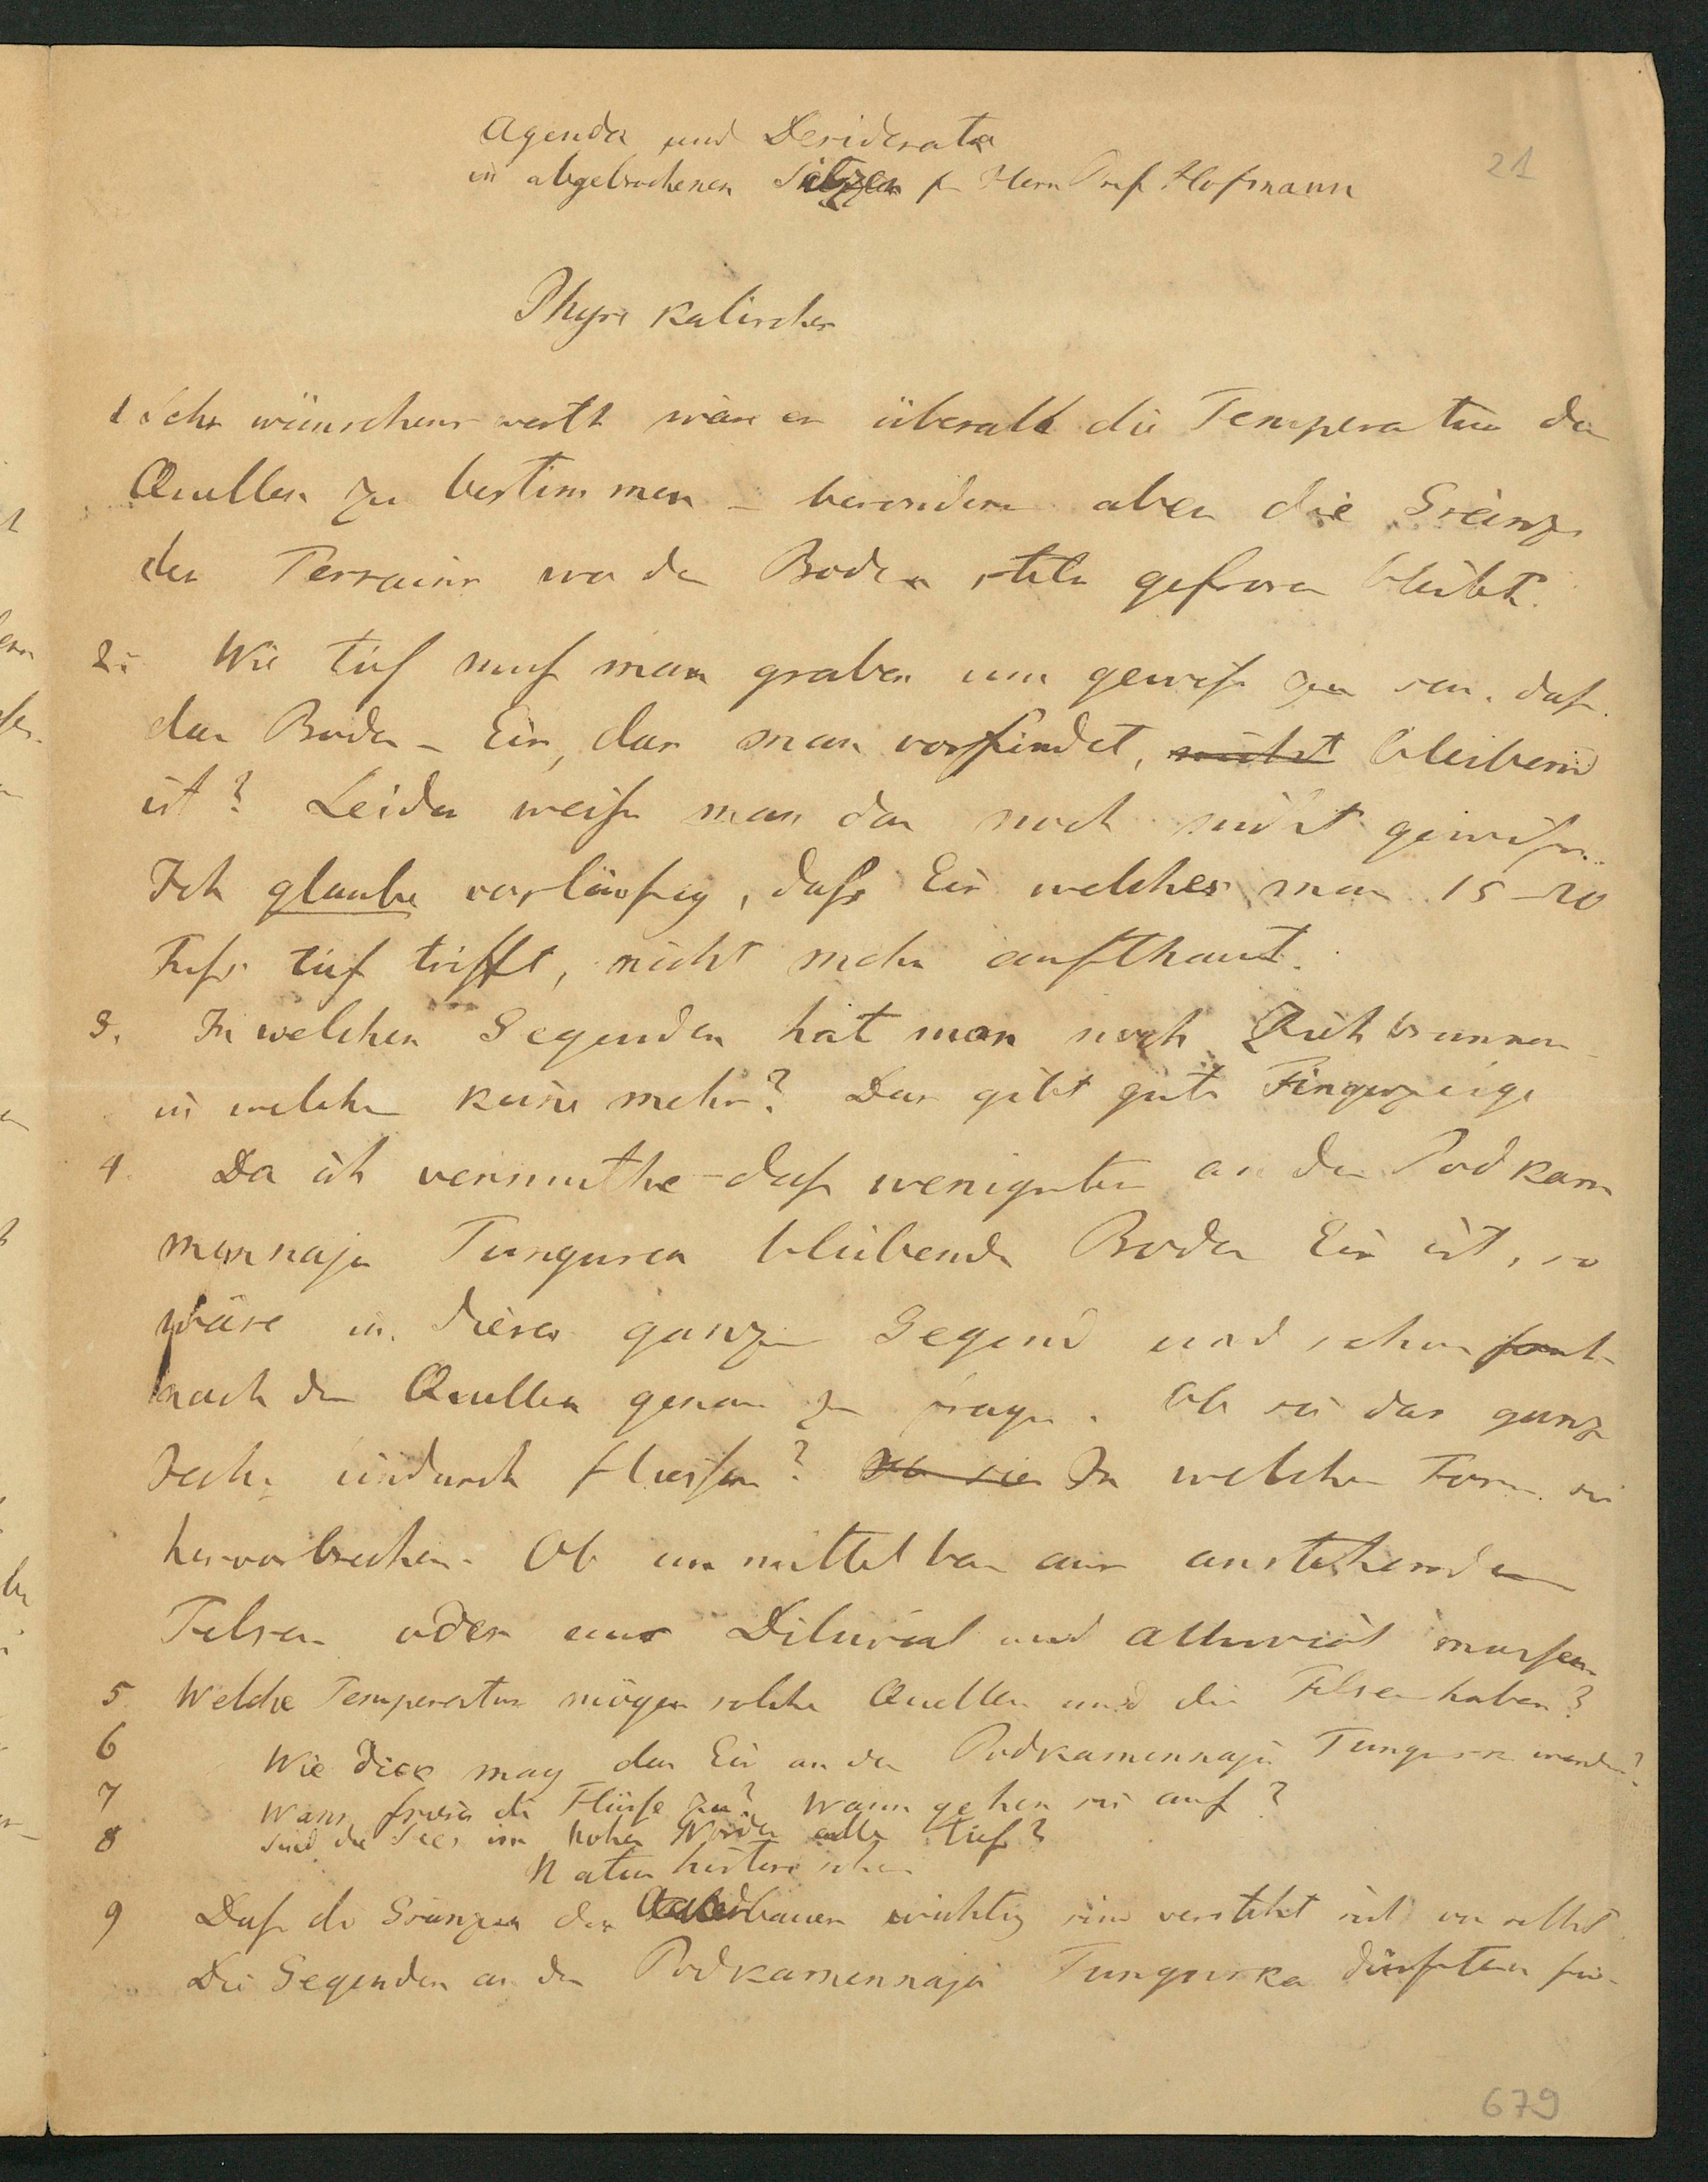 21
Agenda und Desiderata
in abgebrochenen Sätzen für Herrn Prof Hofmann
Physikalisches
1 Sehr wünschenswerth wäre es überall die Temperatur der
Quellen zu bestimmen – besonders aber die Gränze
des Terrains wo der Boden stets gefroren bleibt.
2. Wie tief muß man graben um gewiß zu sein, daß
das Boden-Eis, das man vorfindet, nicht bleibend
ist? Leider weiß man das noch nicht gewiß.
Ich glaube vorläufig, daß Eis welches man 15–20
Fuß tief trifft, nicht mehr aufthaut.
3. In welchen Gegenden hat man noch Ziehbrunnen
in welchen keine mehr? Das gibt gute Fingerzeige
4. Da ich vermuthe daß wenigstens an der Podkam
mennaja Tunguska bleibendes Boden Eis ist, so
wäre in dieser ganzen Gegend und schon
nach den Quellen genau zu fragen. Ob sie das ganze
Jahr hindurch fließen? Ob sie In welcher Form sie
hervorbrechen. Ob unmittelbar aus anstehenden
Felsen oder aus Diluvial und Alluvial massen
5. Welche Temperatur mögen solche Quellen und die Felsen haben?
6 Wie dick mag das Eis an der Podkamennaja Tunguska werden?
7 Wann frieren die Flüsse zu? Wann gehen sie auf?
8 Sind die Seen im hohen Norden alle tief?
Naturhistorisches
9 Daß die Gränzen des Ackerbaues wichtig sind versteht sich von selbst.
Die Gegenden an der Podkamennaja Tunguska dürften für
679